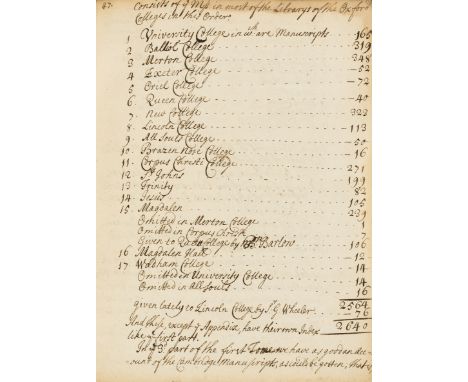 67. Consists of ye Mss in most of the Librarys of the Oxford
Colleges in this Order.
1 University College in wch are Manuscripts - 165
2 Balliol College - 319
3 Merton College - 348
4 Exeter College - 52
5 Oriel College - 72
6 Queen College - 40
7 New College - 323
8 Lincoln College - 113
9 All Souls College - 50
10 Brazen Nose College - 16
11 Corpus Christi College - 271
12 St Johns - 199
13 Trinity - 82
14 Jesus - 105
15 Magdalen - 239
Omitted in Merton College - 1
Omitted in Corpus Christi - 7
Given to Queen College by Barlow - 106
16 Magdalen Hall - 12
17 Wadham College - 14
Omitted in University College - 14
Omitted in All Souls - 16
2564
given lately to Lincoln College by Sr G Wheeler - 76
2640
And these, except ye Appendix, have their own Index
like ye first part.
In ye 3d part of the first Tome we have as good an acc-
ount of the Cambridge Manuscripts, as could be gotten, that is